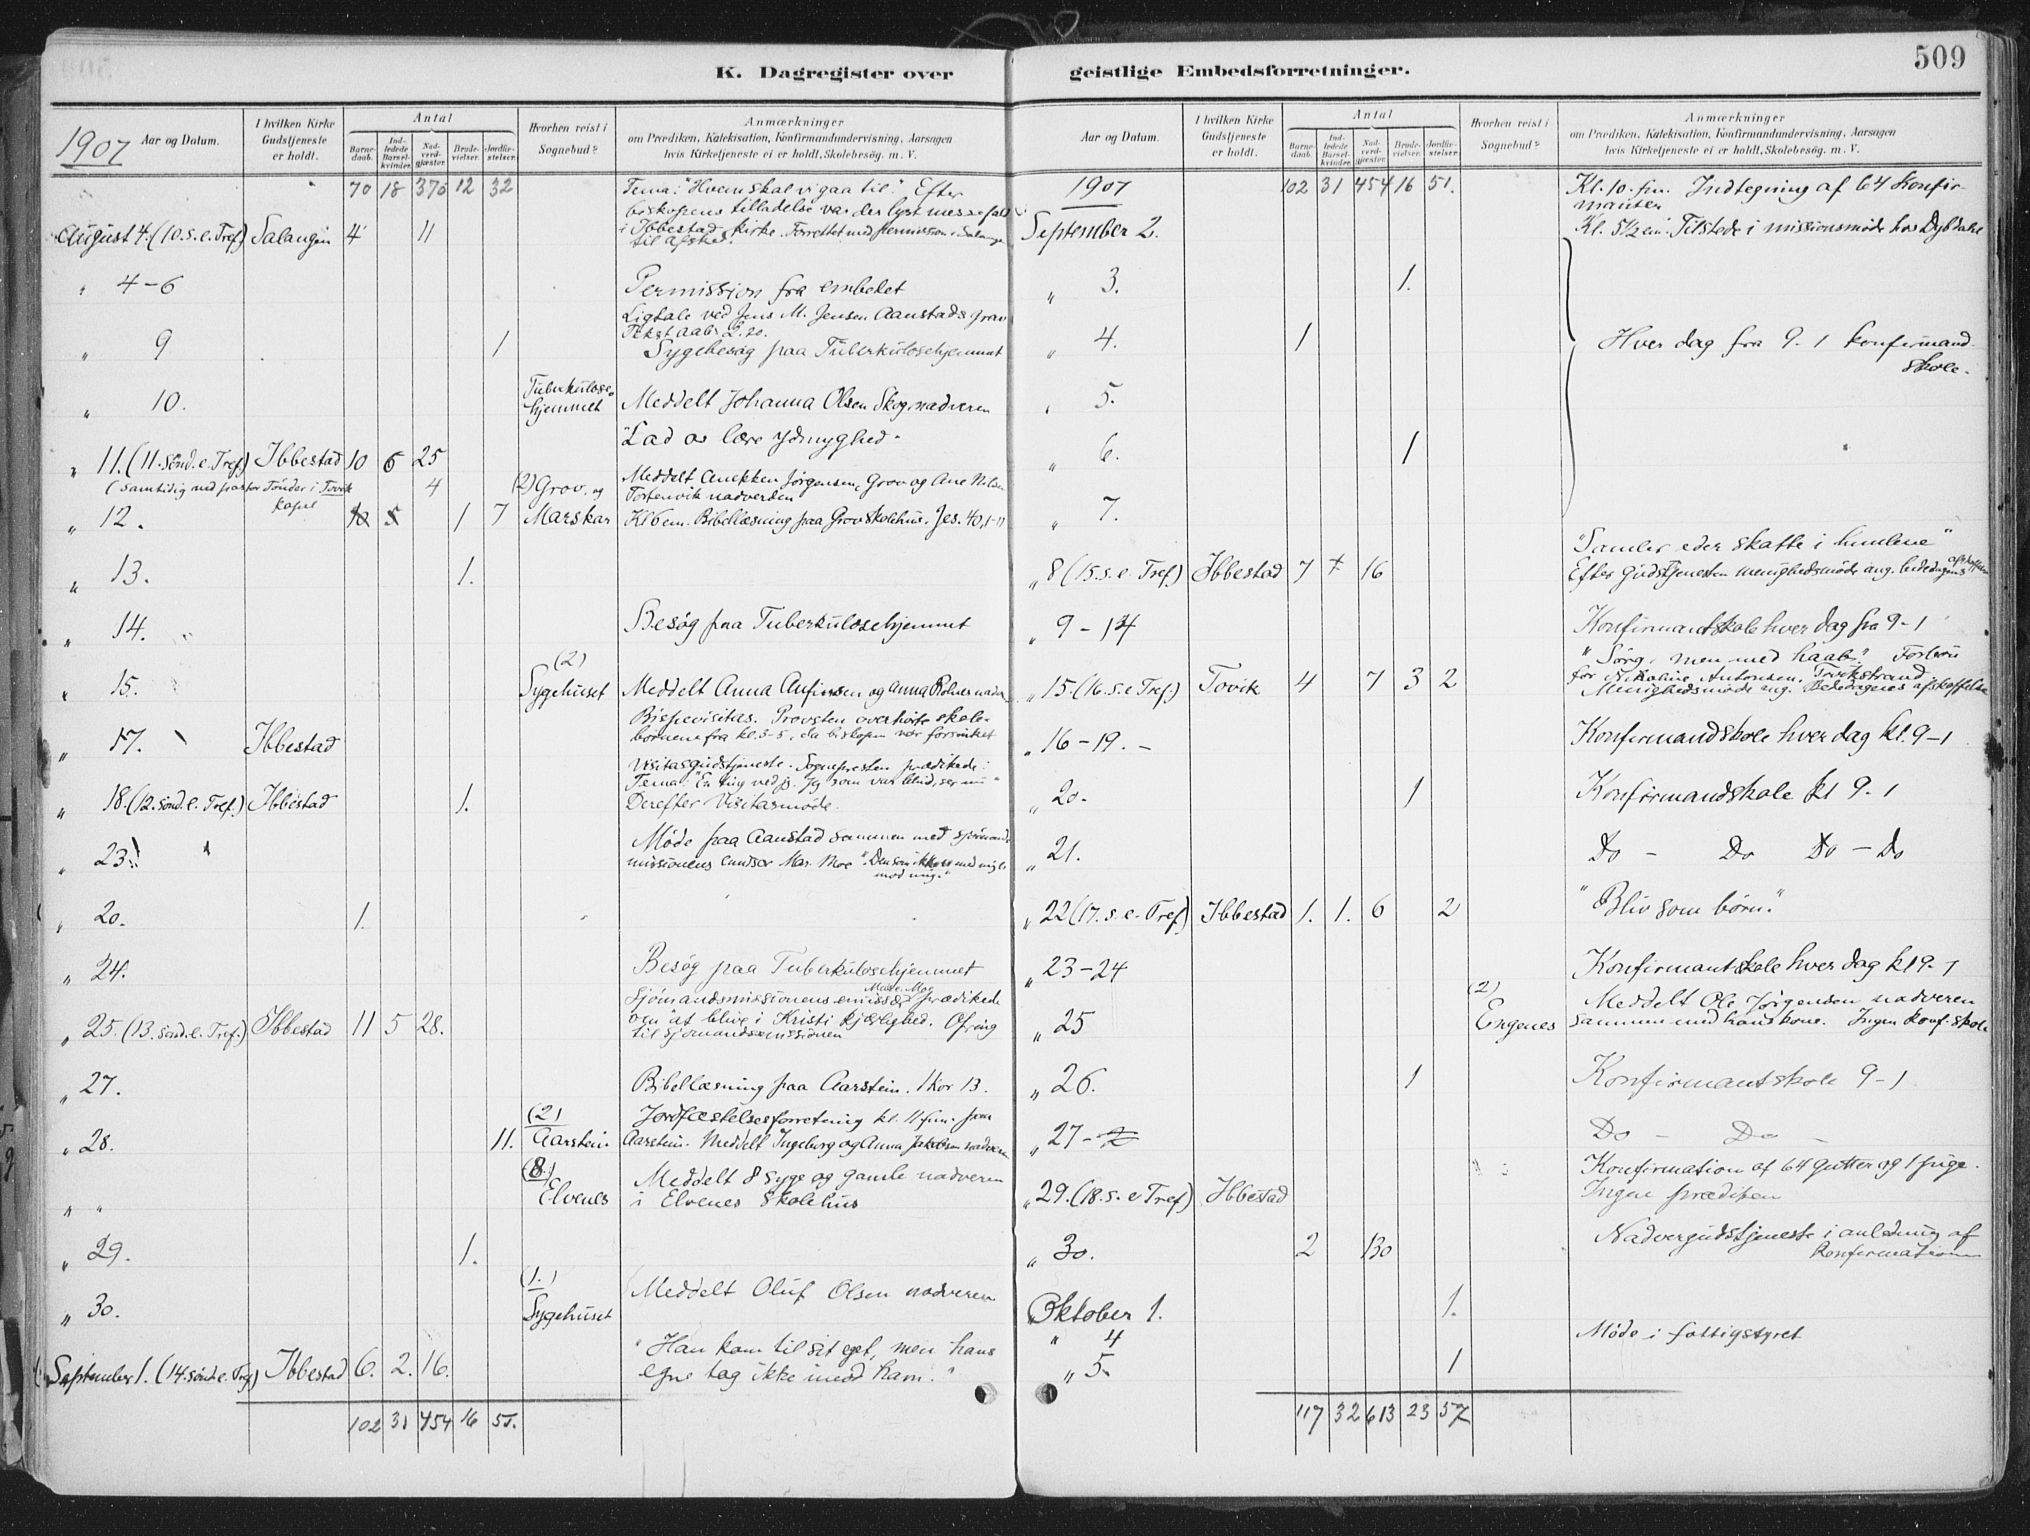 509
K. Dagregister over
1907 Aar og Datum. I hvilken Kirke Gudstjeneste er holdt. Antal Barnedaab. Indledede Barselkvinder. Nadverdgjæster. Brudevielser. Jordfæstelser. Hvorhen reist i Sognebud? Anmærkninger
om Prædiken, Katekisation, Konfirmandundervisning, Aarsagen
hvis Kirketjeneste ei er holdt, Skolebesøg. m. V.
70 18 370 12 32 Tema: "Hvem skal vi gaa til." Efter
biskopens tilladelse var der lyst messefald
August 4. (10. s. e. Tref) Salangen 4 11 i Ibbestad kirke. Forrettet med permission i Salangen
til afsked.
" 4-6 Permission fra embedet
Ligtale ved Jens M. Jensen Aanstads Grav
Tekst aab. 2.20.
" 9 1 Sygebesøg paa Tuberkulosehjemmet
" 10. Tuberkulosehjemmet Meddelt Johanna Olsen Skog nadveren
"Lad os lære ydmyghed"
" 11. (11. sønd. e. Tref.) Ibbestad 10 6 25
(samtidig ved pastor Tønder i Tovik kapel 4 (2) Grov og Meddelt Anekken Jørgensen, Grov og Ane Nilsen
nadverden
" 12. 10 5 1 7 Marskar Kl 6 em. Bibellæsning paa Grov Skolehus. Jes. 40,1-11
" 13. 1.
" 14. Besøg paa Tuberkulosehjemmet
(2)
" 15. Sygehuset Meddelt Anna Anfinsen og Anna nadver
Bispevisitas. Provsten overhørte skole-
" 17. Ibbestad børnene fra kl. 3-5, da biskopen var forsinket
Visitasgudstjeneste. Sognepresten prædikede:
Tema: "En ting ved jeg. Jeg som var blind, ser nu"
" 18. (12. sønd. e. Tref.) Ibbestad 1. Derefter Visitasmøde.
Møde paa Aanstad sammen med sjømands-
" 23. missionens emissær Mar. Moe "Den som ikke er med mig er
mod mig."
" 20. 1.
" 24. Besøg paa Tuberkulosehjemmet
Sjømandsmissionens emissær Moe prædikede
" 25. (13. sønd. e. Tref.) Ibbestad 11 5 28. om "at blive i Kristi kjærlighed. Ofring
til sjømandsmissionen
" 27. Bibellæsning paa Aarstein. 1 Kor 13.
(2) Jordfæstelsesforretning kl. 11 fm. paa
" 28. 11. Aarstein Aarstein. Meddelt Ingeborg og Anna Jakobsen nadveren
(8.) Meddelt 8 syge og gamle nadveren
" " Elvenes i Elvenes Skolehus
" 29. 1.
(1.) Meddelt Oluf Olsen nadveren
" 30. Sygehuset
"Han kom til sit eget, men hans
September 1. (14. sønd. e. Tref) Ibbestad 6. 2. 16. egne tog ikke imod ham."
102 31 454 16 51.
geistlige Embedsforretninger.
Aar og Datum. I hvilken Kirke Gudstjeneste er holdt. Antal Barnedaab. Indledede Barselkvinder. Nadverdgjæster. Brudevielser. Jordfæstelser. Hvorhen reist i Sognebud? Anmærkninger
om Prædiken, Katekisation, Konfirmandundervisning, Aarsagen
hvis Kirketjeneste ei er holdt, Skolebesøg. m. V.
1907 102 31 454 16 51. Kl. 10 fm. Indtegning af 64 Konfir-
manter
September 2. Kl. 5 1/2 em. Tilstede i missionsmøde hos Dybdahl
" 3. 1.
" 4. 1 Hver dag fra 9-1 konfirmand-
skole.
" 5.
" 6. 1
" 7.
"Samler eder skatte i himlene"
" 8 (15. s. e. Tref) Ibbestad 7 7 16 Efter Gudstjenesten menighedsmøde ang. bededagens afskaffelse
" 9-14 Konfirmantskole hver dag fra 9-1
"Sørg, men med haab."
" 15. (16. s. e Tref.) Tovik 4 7 3 2 for Nikoline Antonsen, Tovikstrand
Menighedsmøde ang. Bededagenes afskaffelse
" 16-19. Konfirmandskole hver dag kl. 9-1
" 20. 1 Konfirmandskole kl 9-1
" 21. Do - Do Do - Do
" 22 (17. s. e. Tref) Ibbestad 1. 1. 6 2 "Bliv som børn."
" 23-24 Konfirmantskole hver dag kl 9-1
(2) Meddelt Ole Jørgensen nadveren
" 25 Engenes sammen med hans kone. Ingen konf. skole
" 26. 1 Konfirmantskole 9-1
" 27 Do - Do -
Konfirmation af 64 gutter og 1 pige.
" 29. (18. s. e Tref) Ibbestad Ingen prædiken
" 30. 2 130 Nadvergudstjeneste i anledning af
konfirmationen
Oktober 1. 1.
" 4 Møde i fattigstyret
" 5. 1
117 32 613 23 57